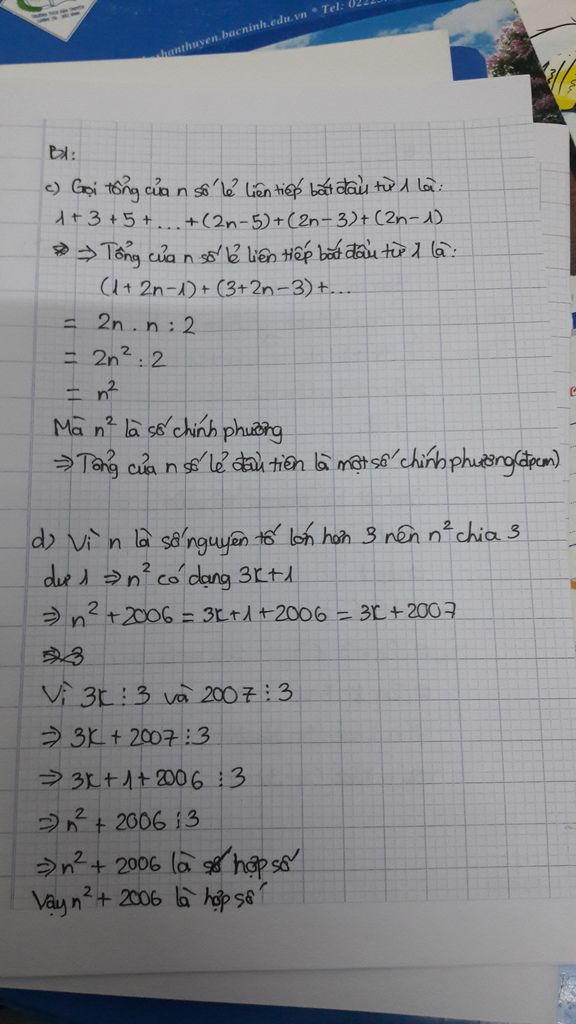 hanthuyen.bacninh.edu.vn * Tel: 0222
B1:
c) Gọi tổng của n số lẻ liên tiếp bắt đầu từ 1 là:
1+3+5+...+(2n-5)+(2n-3)+(2n-1)
⇒ Tổng của n số lẻ liên tiếp bắt đầu từ 1 là:
(1+2n-1)+(3+2n-3)+...
= 2n . n : 2
= 2n² : 2
= n²
Mà n² là số chính phương
⇒ Tổng của n số lẻ đầu tiên là một số chính phương (đpcm)
d) Vì n là số nguyên tố lớn hơn 3 nên n² chia 3
dư 1 ⇒ n² có dạng 3k+1
⇒ n² + 2006 = 3k+1+2006 = 3k+2007
Vì 3k ⋮ 3 và 2007 ⋮ 3
⇒ 3k + 2007 ⋮ 3
⇒ 3k + 1 + 2006 ⋮ 3
⇒ n² + 2006 ⋮ 3
⇒ n² + 2006 là số hợp số
Vậy n² + 2006 là hợp số